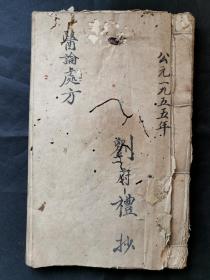 公元一九五五年
劉府禮抄
醫論處方